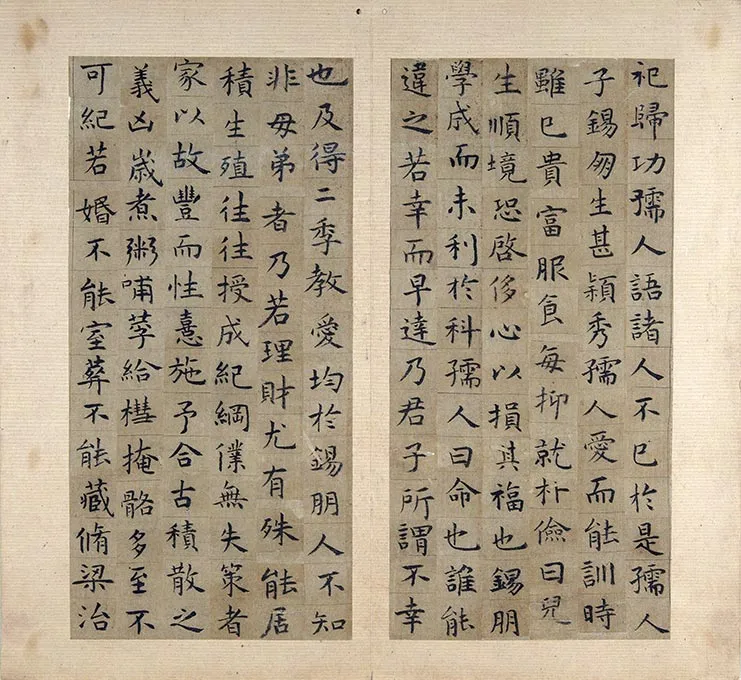 祀歸功孺人語諸人不已於是孺人
子錫朋生甚穎秀孺人愛而能訓時
雖已貴富服食每抑就朴儉曰兒
生順境恐啓侈心以損其福也錫朋
學成而未利於科孺人曰命也誰能
違之若幸而早達乃君子所謂不幸
也及得二季教愛均於錫朋人不知
非毋弟者乃若理財尤有殊能居
積生殖往往授成紀綱僕無失策者
家以故豐而性憙施予合古積散之
義凶歲煮粥哺莩給槥掩骼多至不
可紀若婚不能室葬不能藏脩梁治